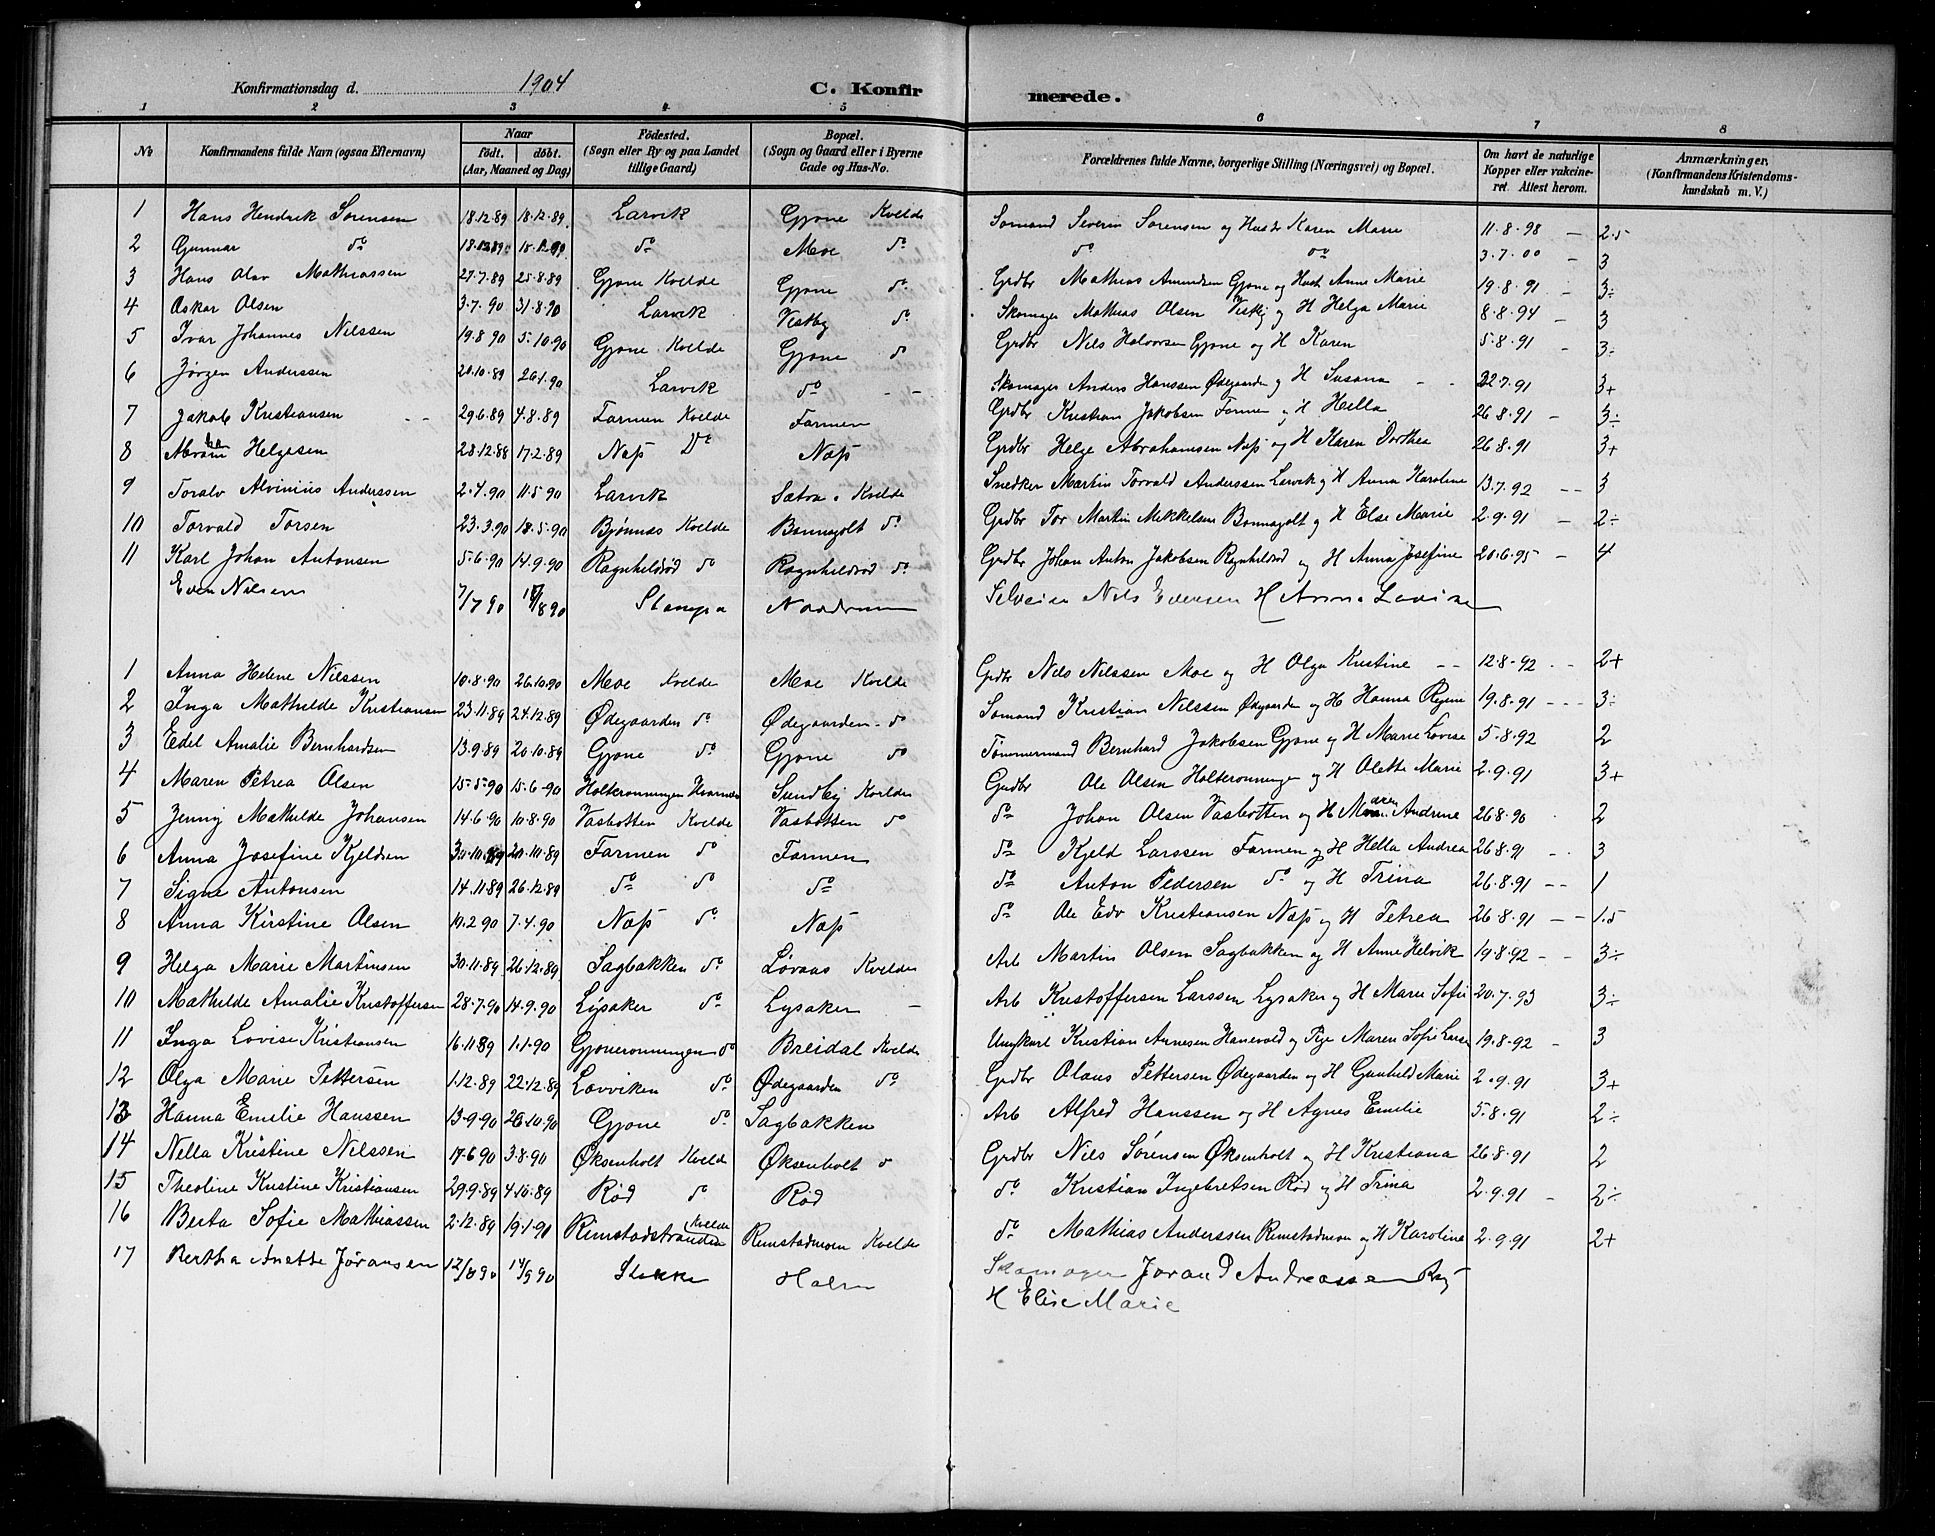 Konfirmationsdag d. 1904 C. Konfirmerede.
1 2 3 4 5 6 7 8
No Konfirmandens fulde Navn (ogsaa Efternavn) Naar født. døbt. (Aar, Maaned og Dag) Födested. (Sogn eller By og paa Landet tillige Gaard) Bopæl. (Sogn og Gaard eller i Byerne Gade og Hus-No. Forældrenes fulde Navne, borgerlige Stilling (Næringsvei) og Bopæl. Om havt de naturlige Kopper eller vakcineret. Attest herom. Anmærkninger, (Konfirmandens Kristendomskundskab m. V.)
1 Hans Hendrik Sørensen 18.12.89 18.12.89 Larvik Gjone Kvelde Sømand Severin Sørensen og Hustr Karen Marie 11.8.98 - 2.5
2 Gunnar do do Moe do do do 3.7.00 - 3
3 Hans Olav Mathiassen 27.7.89 25.8.89 Gjone Kvelde Gjone do Grdbr Mathias Amundsen Gjone og Hust Anne Marie 19.8.91 - 3÷
4 Oskar Olsen 3.7.90 31.8.90 Larvik Vestby do Skomager Mathias Olsen og H Helga Marie 8.8.94 - 3
5 Ivar Johannes Nilssen 19.8.90 5.10.90 Gjone Kvelde Gjone do Grdbr Nils Halvorsen Gjone og H Karen 5.8.91 - 3÷
6 Jørgen Anderssen 20.10.89 26.1.90 Larvik do - - Skomager Anders Hanssen Ødegaarden og H Susana - - 22.7.91 3+
7 Jakob Kristiansen - - 29.6.89 4.8.89 Farmen Kvelde Farmen Grdbr Kristian Jakobsen Farmen og H Hella 26.8.91 - 3÷
8 Helgesen 28.12.88 17.2.89 Næss Do Næss Grdbr Helge Abrahamsen Næss og H Karen Dorthea 26.8.91 3+
9 Toralv Alvinius Anderssen 2.4.90 11.5.90 Larvik Sætra i Kvelde Snedker Martin Torvald Anderssen Larvik og H Anna Karoline 13.7.92 - - 3
10 Torvald Torsen 23.3.90 18.5.90 Bjønnes Kvelde Bonnagolt do Grdbr Tor Martin Mikkelsen Bonnagolt og H Else Marie 2.9.91 - 2÷
11 Karl Johan Antonsen 5.6.90 14.9.90 Ragnhildrød do Ragnhildrød do Grdbr Johan Anton Jakobsen Ragnhildrød og H Anna Josefine 20.6.95 - 4
Even Nilsen 7/7 90 Slangsa Selveier Nils Evensen H Anna Lovise
1 Anna Helene Nilssen 10.8.90 26.10.90 Moe Kvelde Moe Kvelde Grdbr Nils Nilssen Moe og H Olga Kristine - - 12.8.92 - - 2+
2 Inga Mathilde Kristiansen 23.11.89 24.12.89 Ødegaarden do Ødegaarden - do Sømand Kristian Nilssen Ødegaarden og H Hanna Regine 19.8.91 - - - 3÷
3 Edel Amalie Bernhardsen 13.9.89 20.10.89 Gjone do Gjone do Tømmermand Bernhard Jakobsen Gjone og H Marie Lovise 5.8.92 2
4 Maren Petrea Olsen 15.5.90 15.6.90 Holteronningen Sundby Kvelde Grdbr Ole Olsen Holteronningen og H Olette Marie 2.9.91 3+
5 Jenny Mathilde Johansen 14.6.90 10.8.90 Vasbotten Kvelde Vasbotten do do Johan Olsen Vasbotten og H Maren Andrine 26.8.90 2
6 Anna Josefine Kjeldsen 20.10.89 Farmen do Farmen do Kjeld Larssen Farmen og H Hella Andrea 26.8.91 - 3
7 Signe Antonsen 14.11.89 26.12.89 do do do do Anton Pedersen do og H Trina 26.8.91 - - 1
8 Anna Kirstine Olsen 10.2.90 7.4.90 Næss do Næss do Ole Edv Kristiansen Næss og H Petrea 26.8.91 - - 1.5
9 Helga Marie Martinsen 30.11.89 26.12.89 Sagbakken do Løvaas Kvelde Arb Martin Olsen Sagbakken og H Anne Helvik 19.8.92 - - 3÷
10 Mathilde Amalie Kristoffersen 28.7.90 14.9.90 Lysaker do Lysaker - Arb Kristoffersen Larssen Lysaker og H Marie Sofie 20.7.93 3÷
11 Inga Lovise Kristiansen 16.11.89 1.1.90 Gjoneronningen do Breidal Kvelde Ungkarl Kristian Arnesen Hanevold og Pige Maren Sofie 19.8.92 - 3
12 Olga Marie Pettersen 1.12.89 22.12.89 Lovviken do Ødegaarden do Grdbr Olaus Pettersen Ødegaarden og H Gunhild Marie 2.9.91 3+
13 Hanna Emilie Hanssen 13.9.90 26.10.90 Gjone do Sagbakken Arb Alfred Hanssen og H Agnes Emilie 5.8.91 2÷
14 Nella Kristine Nilssen 17.6.90 3.8.90 Øksenholt Kvelde Øksenholt do Grdbr Nils Sørensen Øksenholt og H Kristiana 26.8.91 2
15 Theoline Kristine Kristiansen 29.9.89 4.10.89 Rød do Rød do Kristian Ingebretsen Rød og H Trina 2.9.91 - 2÷
16 Berta Sofie Mathiassen 2.12.89 19.1.90 Rimstadstranden Kvelde Rimstadmoen Kvelde do Mathias Anderssen Rimstadmoen og H Karoline 2.9.91 2+
17 Bertha Anette Jøransen 14/9 90 Stokke Holm Skomager Joran P Andreassen
H Elise Marie